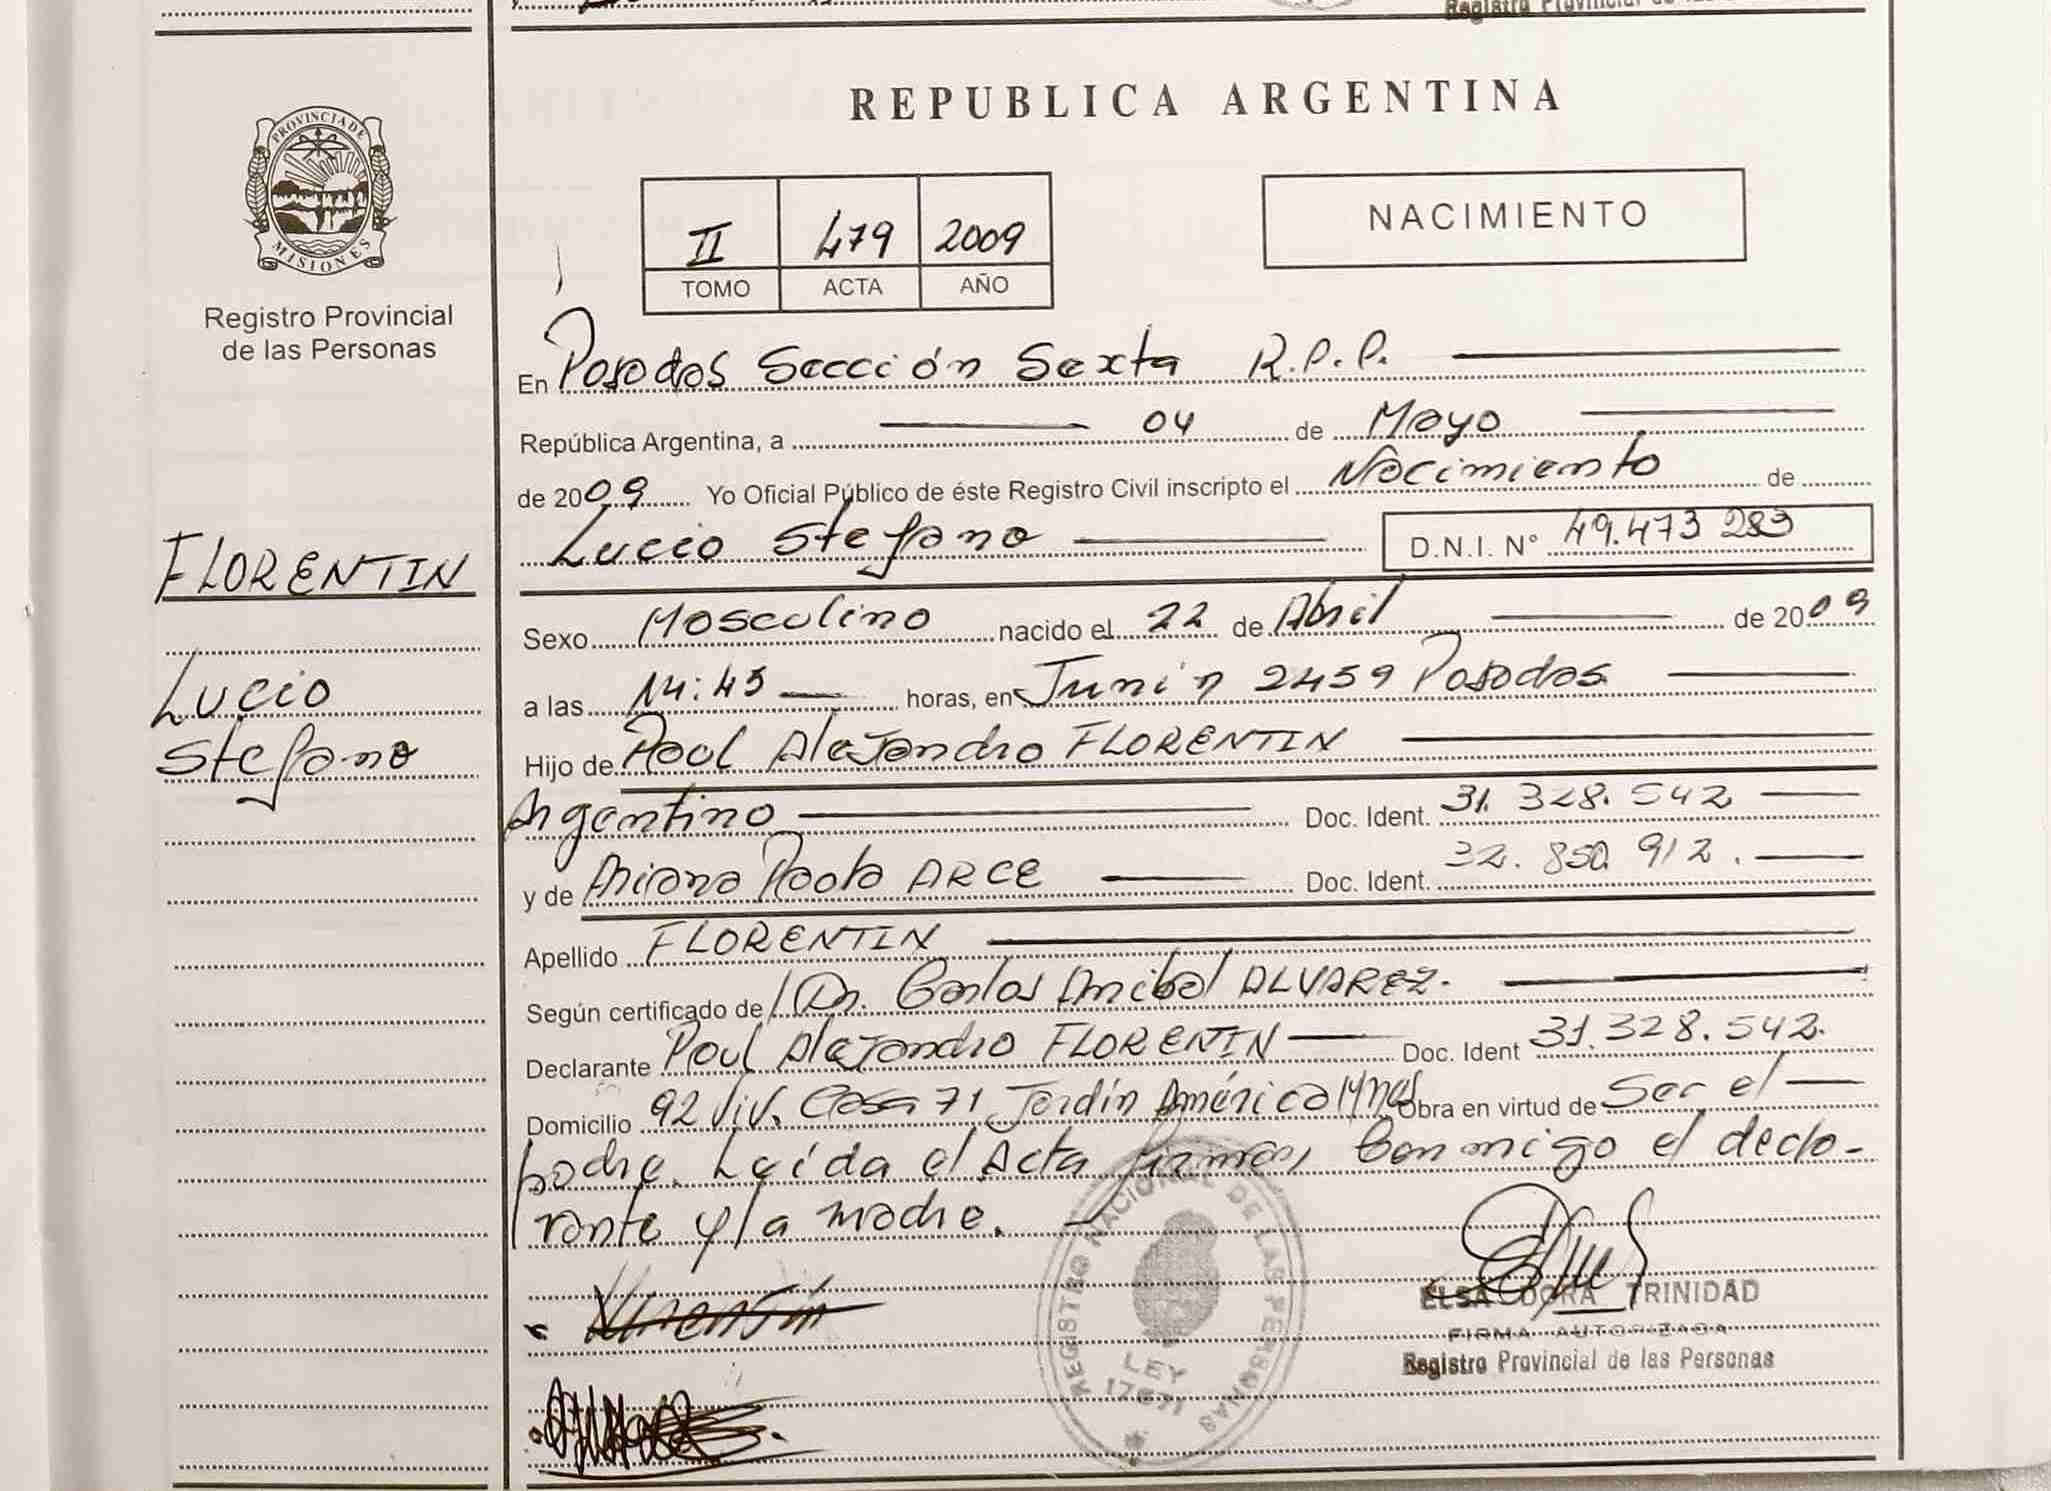 Registro Provincial de las
PROVINCIA DE
MISIONES
Registro Provincial
de las Personas
FLORENTIN
Lucio
Stefano
REPUBLICA ARGENTINA
II 479 2009
TOMO ACTA AÑO
NACIMIENTO
En Posadas Sección Sexta R.P.P.
República Argentina, a 04 de Mayo
de 2009 Yo Oficial Público de éste Registro Civil inscripto el Nacimiento de
Lucio Stefano D.N.I. N° 49.473 283
Sexo Masculino nacido el 22 de Abril de 2009
a las 14:45 horas, en Junín 2459 Posadas
Hijo de Raul Alejandro FLORENTIN
Argentino Doc. Ident. 31.328.542
y de Ariana Paola ARCE Doc. Ident. 32.850.912.
Apellido FLORENTIN
Según certificado de Dr. Carlos Anibal ALVAREZ.
Declarante Raul Alejandro FLORENTIN Doc. Ident 31.328.542.
Domicilio 92 Viv. Casa 71 Jardín América Mnes Obra en virtud de Ser el
padre. Leída el Acta firman, Conmigo el decla-
rante y la madre.
REGISTRO NACIONAL DE LAS PERSONAS
LEY
17671
ELSA DORA TRINIDAD
FIRMA AUTORIZADA
Registro Provincial de las Personas